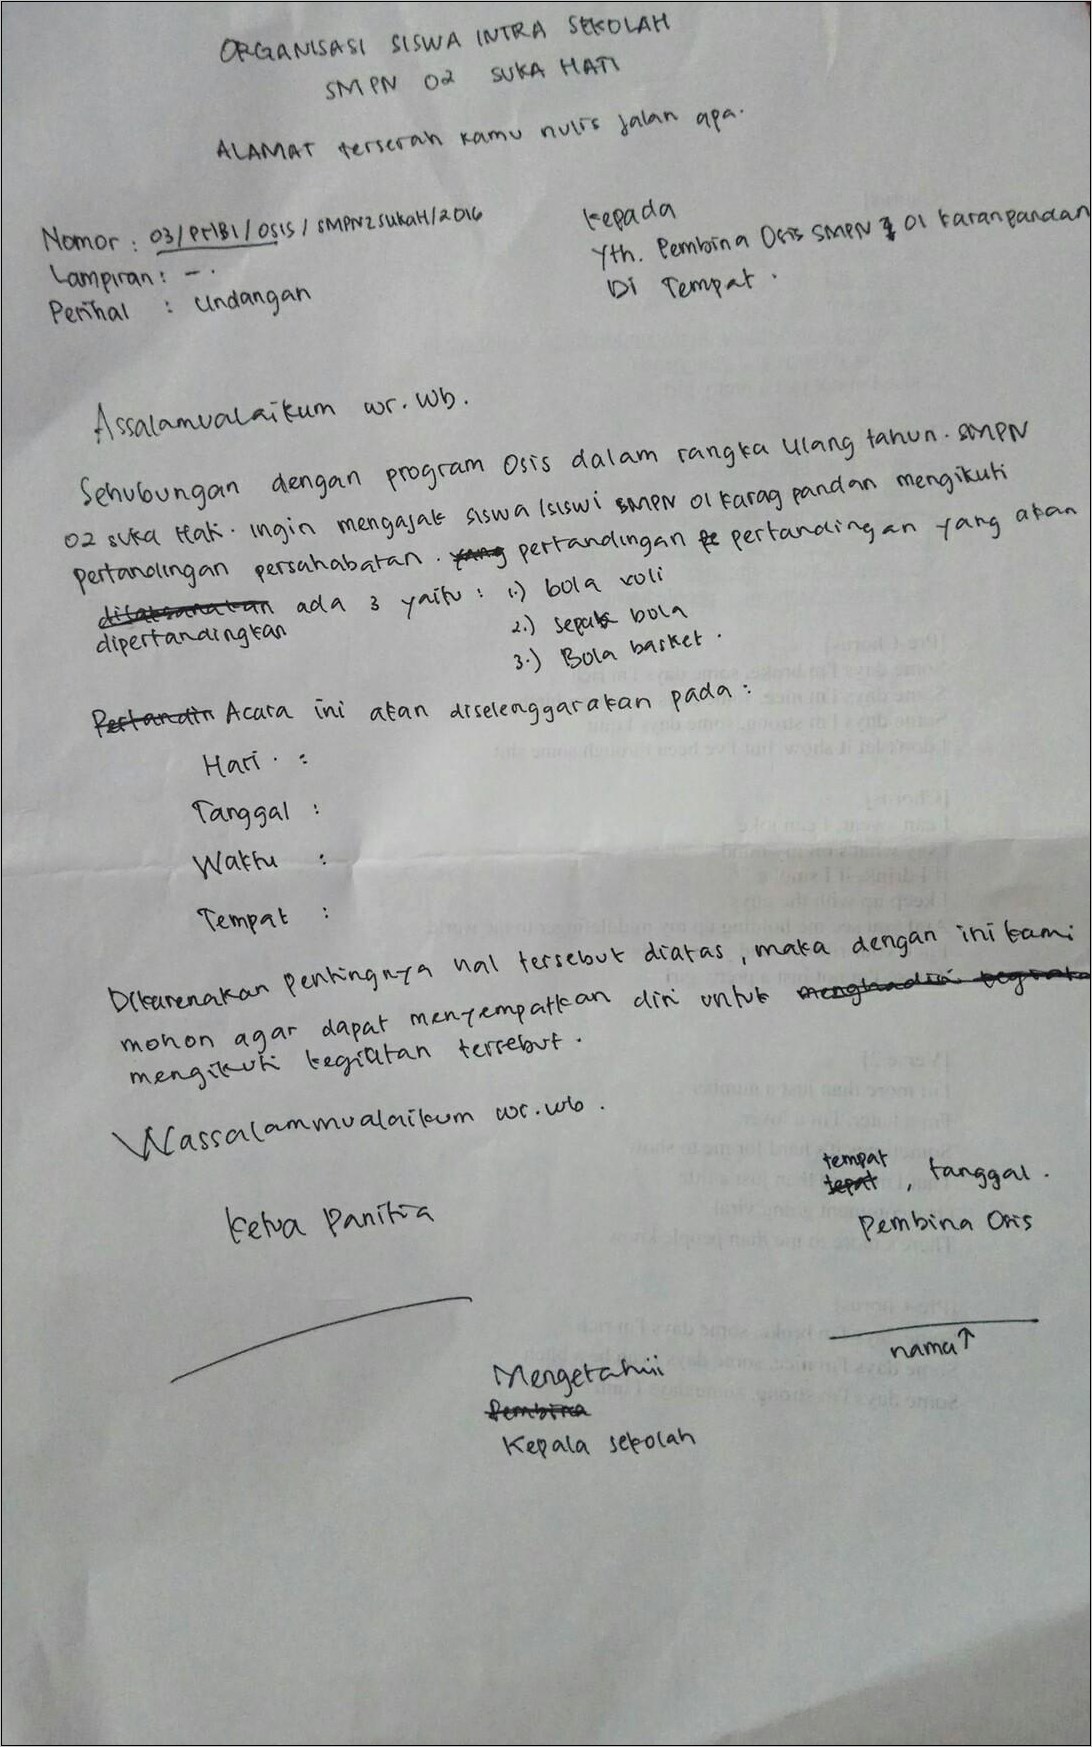 ORGANISASI SISWA INTRA SEKOLAH
SMPN 02 SUKA HATI
ALAMAT terserah kamu nulis jalan apa.
Nomor : 03/PHBI/OSIS/SMPN2SUKAH/2016
Lampiran : - .
Perihal : Undangan
Kepada
Yth. Pembina Osis SMPN 01 Karanpandan
Di Tempat .
Assalamualaikum wr. wb.
Sehubungan dengan program Osis dalam rangka Ulang tahun. SMPN
02 suka Hati. Ingin mengajak siswa/siswi SMPN 01 Karag pandan mengikuti
pertandingan persahabatan. yang pertandingan pe pertandingan yang akan
dilaksanakan ada 3 yaitu : 1.) bola voli
dipertandingkan
2.) sepak bola
3.) Bola basket .
Pertandin Acara ini akan diselenggarakan pada :
Hari . :
Tanggal :
Waktu :
Tempat :
Dikarenakan pentingnya hal tersebut diatas, maka dengan ini kami
mohon agar dapat menyempatkan diri untuk menghadiri
mengikuti kegiatan tersebut .
Wassalammualaikum wr. wb .
tempat
tepat , tanggal .
Ketua Panitia
Pembina Osis
nama↑
Mengetahui
Pembina
Kepala sekolah